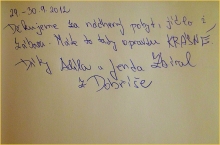 29.-30.9.2012
Děkujeme za nádherný pobyt, jídlo i
zábavu. Máte to tady opravdu KRÁSNÉ
Díky Adéla a Jenda Zbíral
z Dobříše